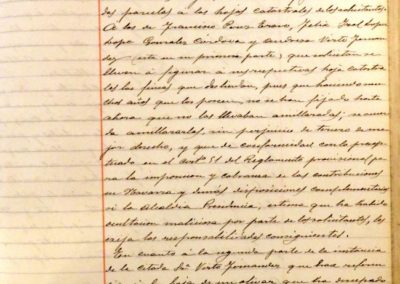 das parcelas a las hojas catastrales de los solicitantes.
A los de Francisco Ponz Bravo, Felix
Lope Gonzalez Córdova y Andresa Verto Fernan
dez (esta en su primera parte), que solicitan se
lleven a figurar a sus respectivas hojas catastra
les las fincas que deslindan, pues que haciendo mu
chos años que las poseen, no se han fijado hasta
ahora que no las llevaban amillaradas; se acuer
da amillararlas, sin perjuicio de tercero de me
jor derecho, y que de conformidad con lo precep
tuado en el artº 51 del Reglamento provisional, pa
ra la imposicion y cobranza de las contribuciones
en Navarra y demás disposiciones complementarias
si la Alcaldia Presidencia, estima que ha habido
ocultacion maliciosa por parte de los solicitantes, les
exija las responsabilidades consiguientes.
En cuanto a la segunda parte de la instancia
de la citada Dª Verto Fernandez que hace referen
cia a la baja de un olivar que ha